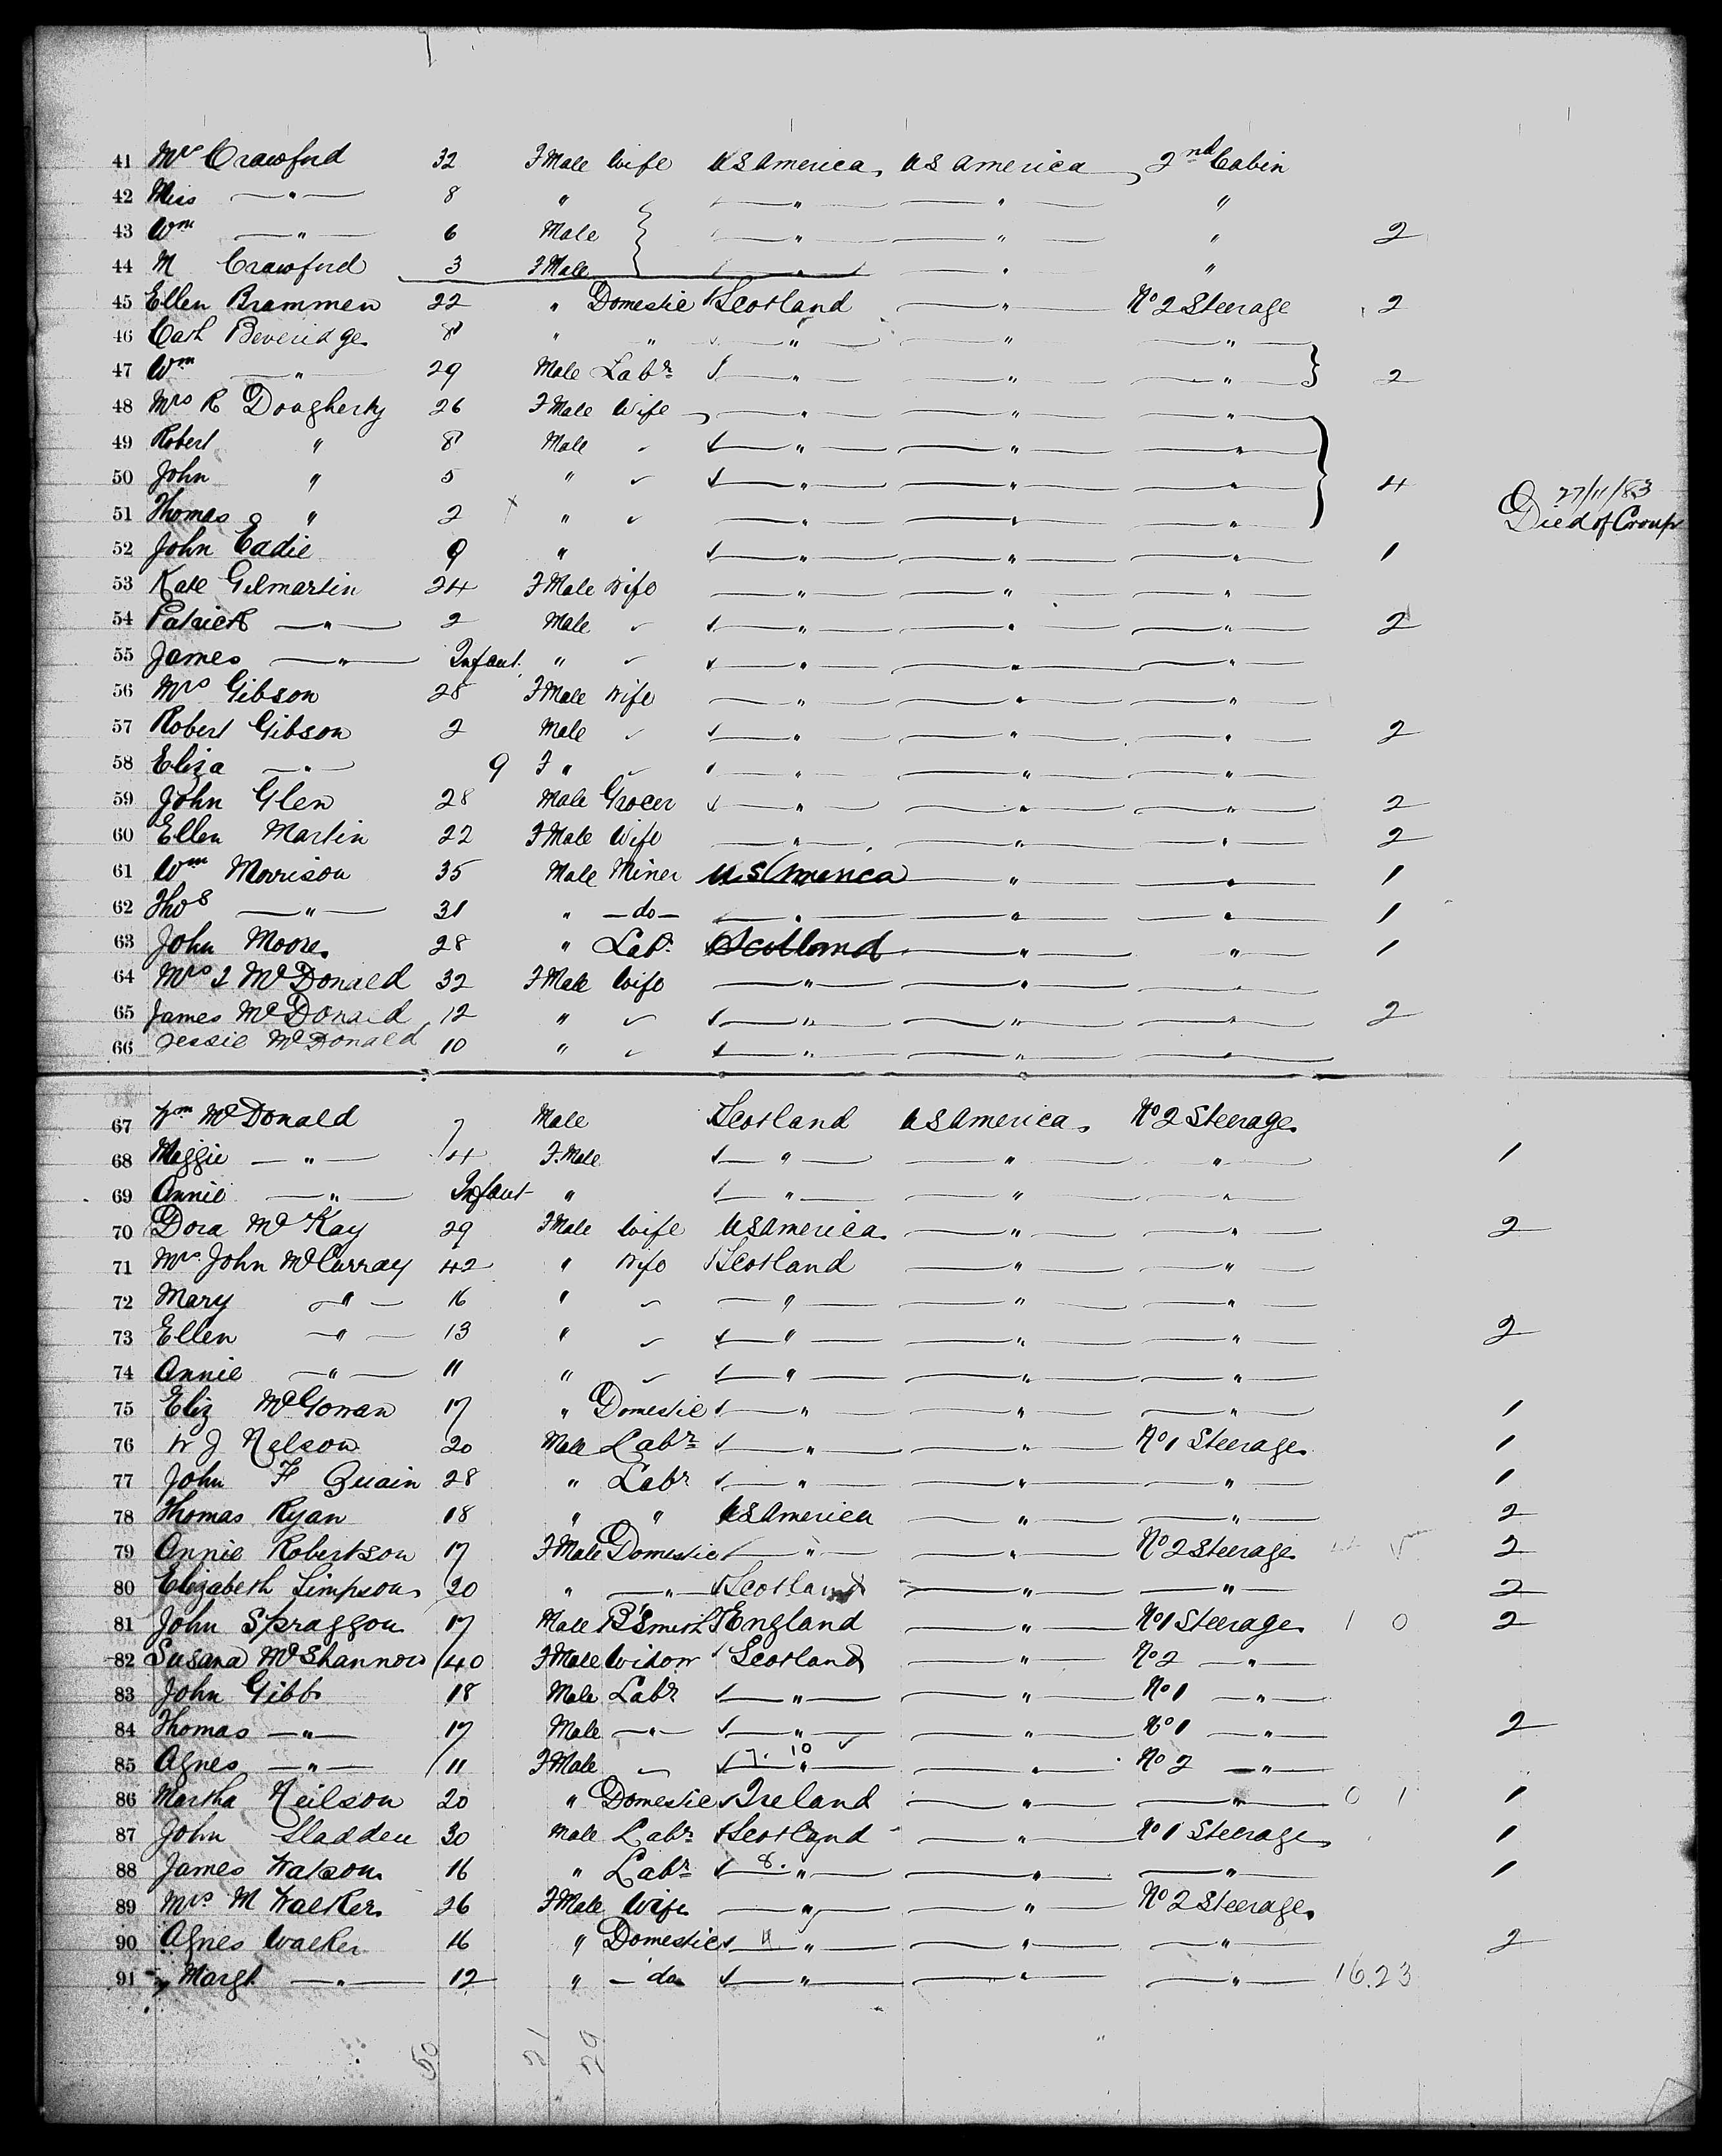 41 Mrs Crawford 32 FMale Wife US America US America 2nd Cabin
42 Miss —"— 8 " —"— —"— "
43 Wm —"— 6 Male —"— —"— " 2
44 M Crawford 3 FMale —"— —"— "
45 Ellen Brammen 22 " Domestic Scotland —"— No 2 Steerage 2
46 Cath Beveridge 8 " " —"— —"— —"—
47 Wm —"— 29 Male Labr —"— —"— —"— 2
48 Mrs R Dougherty 26 FMale Wife —"— —"— —"—
49 Robert " 8 Male —"— —"— —"—
50 John " 5 " —"— —"— —"— 4 27/11/83
51 Thomas " 2 " —"— —"— —"— Died of Croup
52 John Eadie 9 " —"— —"— —"— 1
53 Kate Gilmartin 24 FMale Wife —"— —"— —"—
54 Patrick —"— 2 Male —"— —"— —"— 2
55 James —"— Infant " —"— —"— —"—
56 Mrs Gibson 28 FMale Wife —"— —"— —"—
57 Robert Gibson 2 Male —"— —"— —"— 2
58 Eliza —"— 9 F " —"— —"— —"—
59 John Glen 28 Male Grocer —"— —"— —"— 2
60 Ellen Martin 22 FMale Wife —"— —"— —"— 2
61 Wm Morrison 35 Male Miner US America —"— —"— 1
62 Thos —"— 31 " —do— —"— —"— —"— 1
63 John Moore 28 " Labr Scotland —"— —"— 1
64 Mrs I McDonald 32 FMale Wife —"— —"— —"—
65 James McDonald 12 " —"— —"— —"— 2
66 Jessie McDonald 10 " —"— —"— —"—
67 Wm McDonald 7 Male Scotland US America No 2 Steerage
68 Maggie —"— 4 F.Male —"— —"— —"— 1
69 Annie —"— Infant " —"— —"— —"—
70 Dora McKay 29 FMale Wife US America —"— —"— 2
71 Mrs John McCurray 42 " Wife Scotland —"— —"—
72 Mary —"— 16 " —"— —"— —"—
73 Ellen —"— 13 " —"— —"— —"— 2
74 Annie —"— 11 " —"— —"— —"—
75 Eliz McGowan 17 " Domestic —"— —"— —"— 1
76 W J Nelson 20 Male Labr —"— —"— No 1 Steerage 1
77 John F Quain 28 " Labr —"— —"— —"— 1
78 Thomas Ryan 18 " " US America —"— —"— 2
79 Annie Robertson 17 FMale Domestic —"— —"— No 2 Steerage 2
80 Elizabeth Simpson 20 " —"— Scotland —"— —"— 2
81 John Spraggon 17 Male B'Smith England —"— No 1 Steerage 1 0 2
82 Susana McShannon 40 FMale Widow Scotland —"— No 2 —"—
83 John Gibb 18 Male Labr —"— —"— No 1 —"—
84 Thomas —"— 17 Male —"— —"— —"— No 1 —"— 2
85 Agnes —"— 11 FMale 7. 10 —"— —"— No 2 —"—
86 Martha Neilson 20 " Domestic Ireland —"— —"— 0 1 1
87 John Sladden 30 Male Labr Scotland —"— No 1 Steerage 1
88 James Watson 16 " Labr 8. —"— —"— —"— 1
89 Mrs M Walker 26 FMale Wife —"— —"— No 2 Steerage
90 Agnes Walker 16 " Domestic —"— —"— —"— 2
91 Margt —"— 12 " —do —"— —"— —"— 16.23
50 21 29